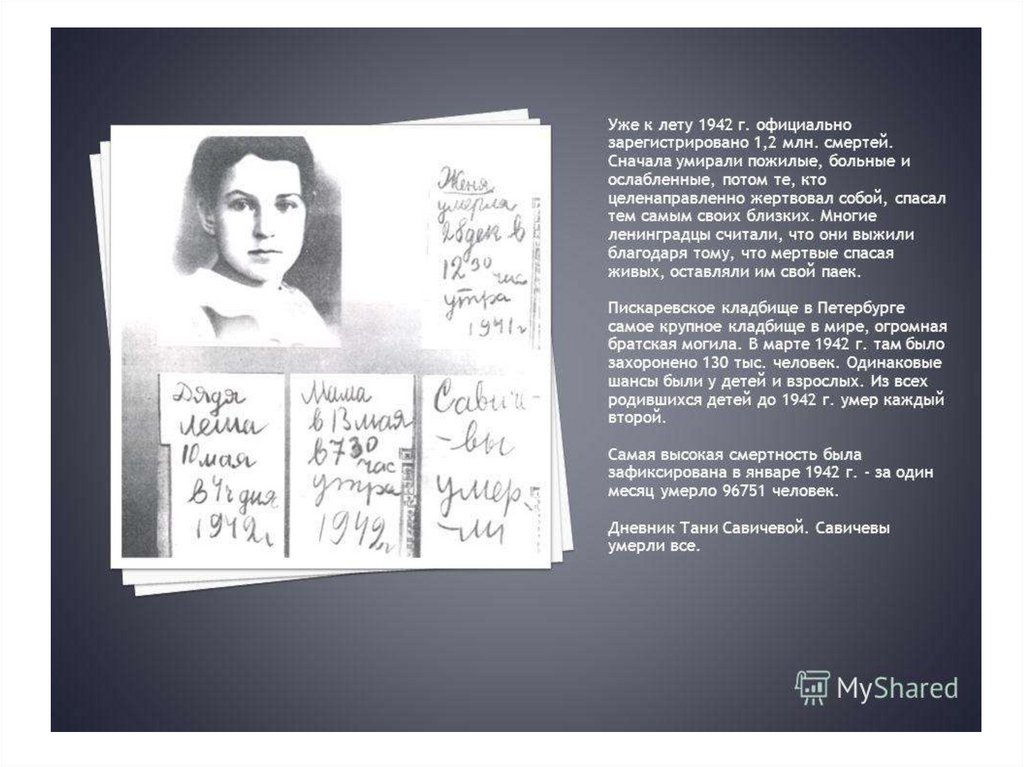 Женя
умерла
28 дек в
12 30
час
утра
1941 г
Дядя
Леша
10 мая
в 4 ч дня
1942 г
Мама
в 13 мая
в 7 30
час
утра
1942 г
Савиче-
-вы
умер-
-ли
Уже к лету 1942 г. официально
зарегистрировано 1,2 млн. смертей.
Сначала умирали пожилые, больные и
ослабленные, потом те, кто
целенаправленно жертвовал собой, спасал
тем самым своих близких. Многие
ленинградцы считали, что они выжили
благодаря тому, что мертвые спасая
живых, оставляли им свой паек.
Пискаревское кладбище в Петербурге
самое крупное кладбище в мире, огромная
братская могила. В марте 1942 г. там было
захоронено 130 тыс. человек. Одинаковые
шансы были у детей и взрослых. Из всех
родившихся детей до 1942 г. умер каждый
второй.
Самая высокая смертность была
зафиксирована в январе 1942 г. - за один
месяц умерло 96751 человек.
Дневник Тани Савичевой. Савичевы
умерли все.
MyShared